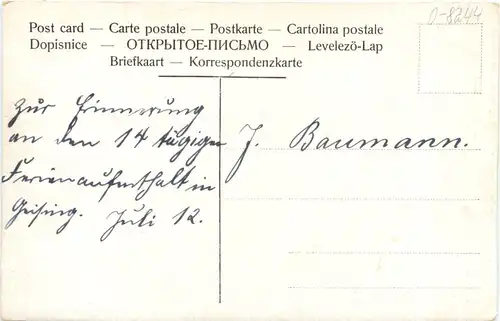 0-8244
Post card — Carte postale — Postkarte — Cartolina postale
Dopisnice — ОТКРЫТОЕ-ПИСЬМО — Levelező-Lap
Briefkaart — Korrespondenzkarte
Zur Erinnerung
an den 14 tägigen
Ferienaufenthalt in
Geising. Juli 12.
J. Baumann.